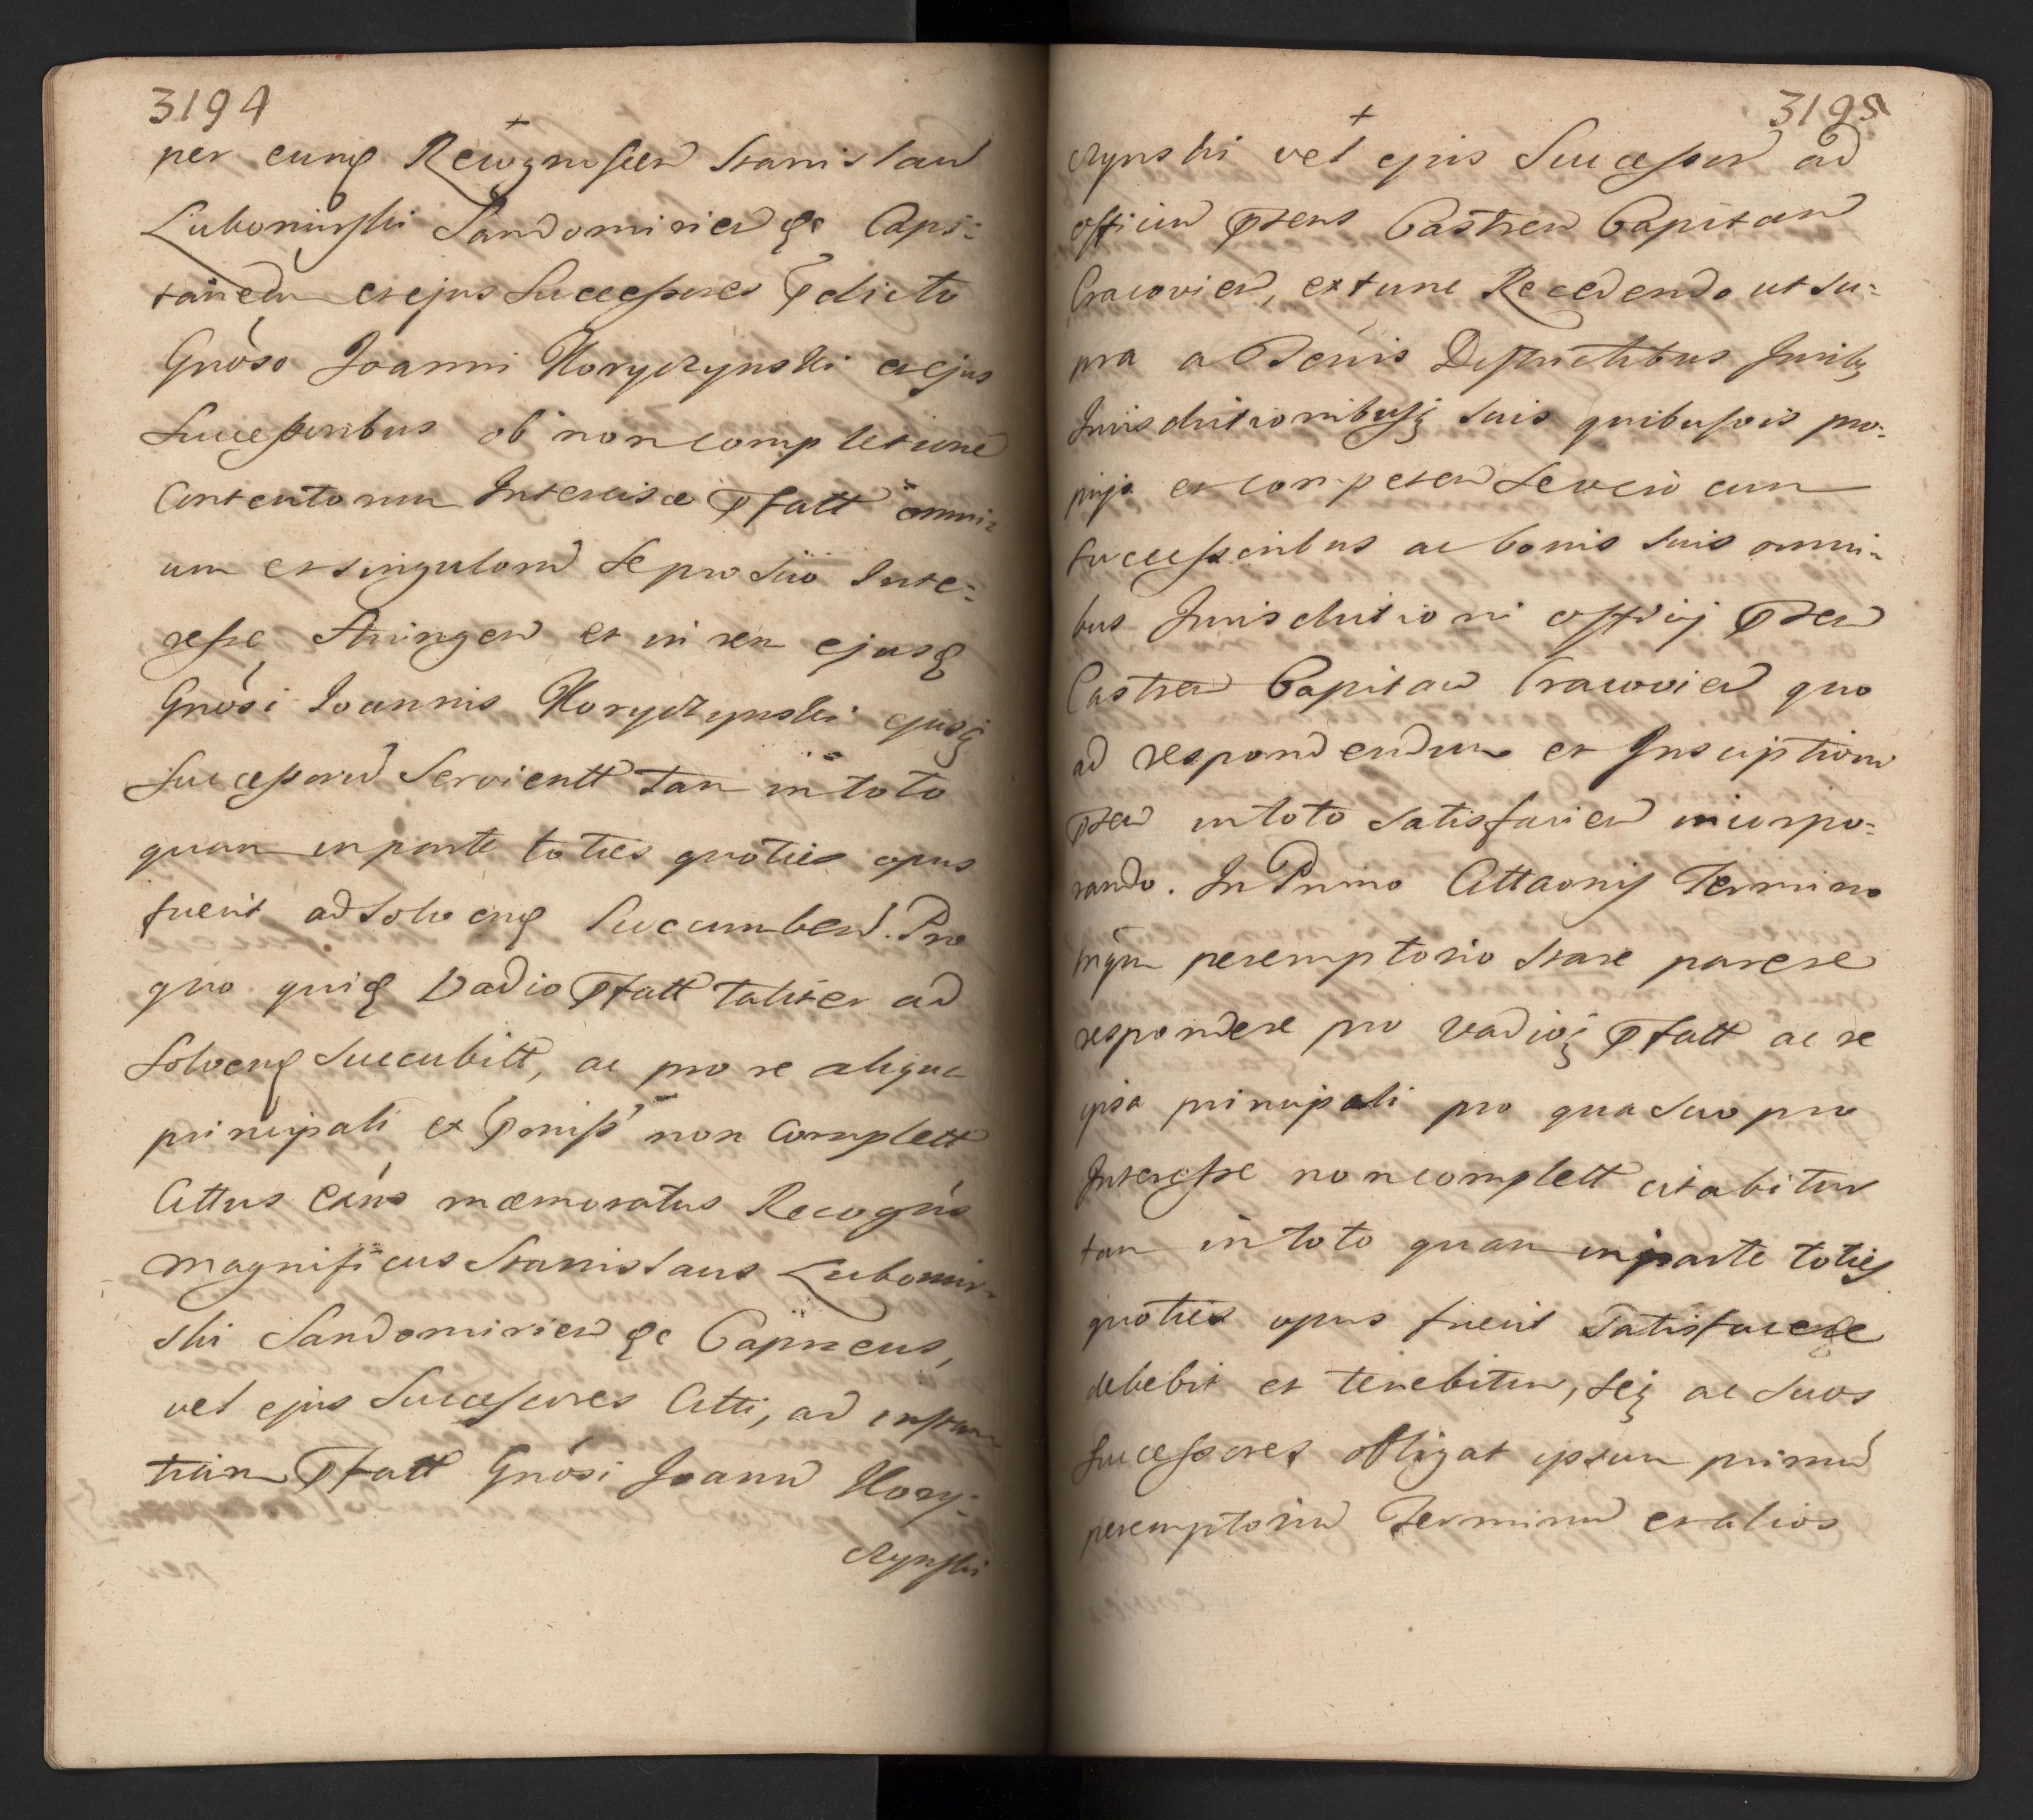 3194
+
per eund Recognoscen Stanislaum
Lubomirski Sandomirien &c Capi=
taneum et ejus Successores Pdicto
Gnoso Joanni Horyczynski et ejus
Successoribus ob non completione
Contentorum Intercisæ Pfatt omni=
um et singulorum Se pro Suo Inte=
resse Stringen et in rem ejusd
Gnosi Joannis Horyczynski ejusq
Successorum Servientt tam in toto
quam in parte toties quoties opus
fuerit ad Solvend Succumben. Pro
quo quid Vadio Pfatt taliter ad
Solvend Succubitt, ac pro re aliqua
principali ex Pmiss non Complett
Cittus eans mæmoratus Recogns
Magnificus Stanislaus Lubomir=
ski Sandomirien &c Capneus,
vel ejus Successores Citti, ad instan
tiam Pfatt Gnosi Joann Hory=
czynski
3195
+
czynski vel ejus Successorum ad
officium Psens Castren Capitan
Cracovien, extunc Recedendo ut su=
pra a Ternis Districtibus Juribq
Jurisdictionibusq suis quibusvis pro=
prijs et competen Seveŕo cum
successoribus ac bonis suis omni=
bus Jurisdictioni officij Psen
Castren Capitan Cracovien quo
ad respondendum et Inscriptioni
Psen in toto Satisfacien incorpo=
rando. In Primo Cittaonis Termino
tnqm peremptorio stare parere
respondere pro vadioq Pfatt ac re
ipsa principali pro qua Suo pro
Interesse non complett citabitur
tam in toto quam in parte toties
quoties opus fuerit Satisfacere
debebit et tenebitur, seq ac suos
successores obligat ipsum primum
peremptorium Terminum et alios